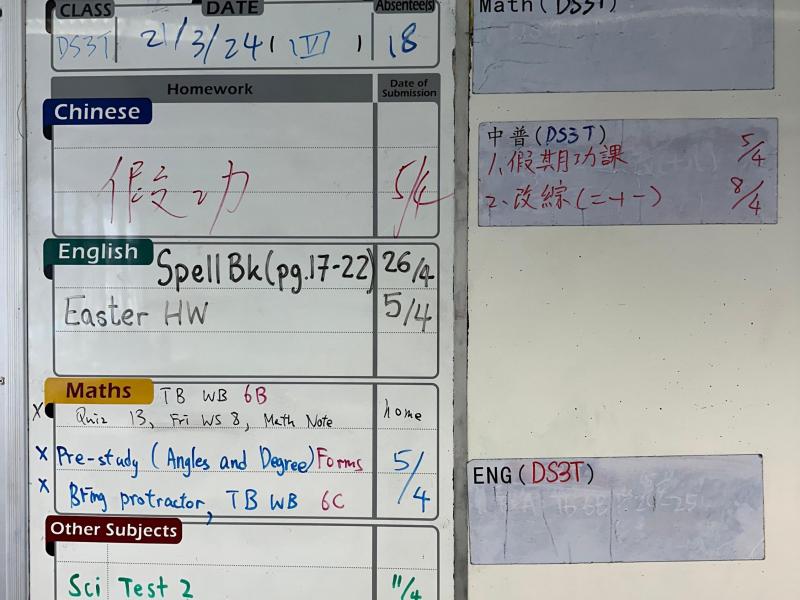 CLASS DATE Absentee(s)
DS3T 21/3/24 ( IV ) 18
Homework Date of Submission
Chinese
假功 5/4
English Spell Bk (pg.17-22) 26/4
Easter HW 5/4
Maths TB WB 6B
x Quiz 13, Fri WS 8, Math Note home
x Pre-study (Angles and Degree) Forms 5/4
x Bring protractor, TB WB 6C
Other Subjects
Sci Test 2 11/4
Math (DS3T)
中普(DS3T)
1.假期功課 5/4
2.改綜(二十一) 8/4
ENG (DS3T)